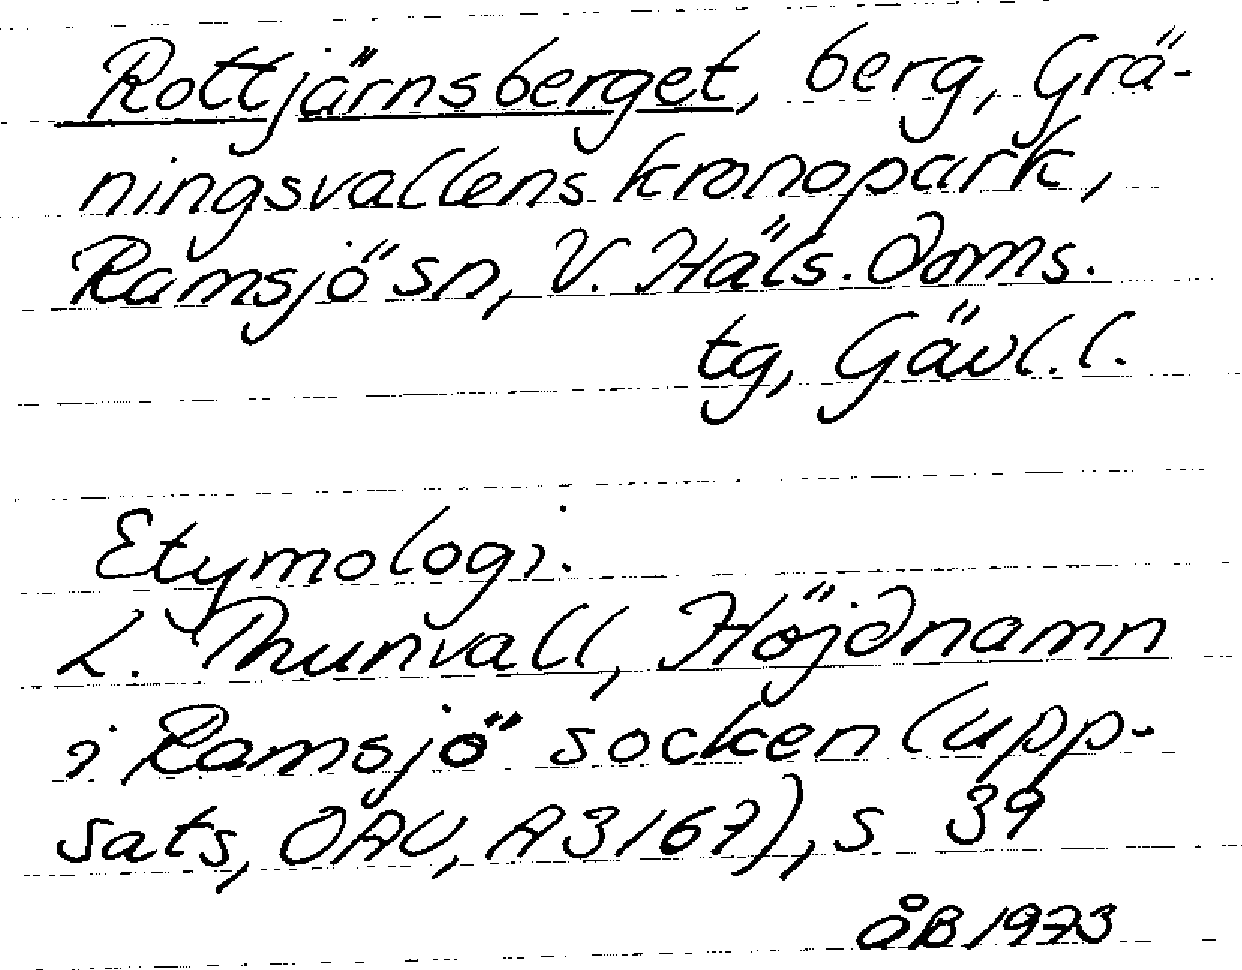 Rottjärnsberget, berg, Grä-
ningsvallens kronopark,
Ramsjö sn, V. Häls. doms.
tg, Gävl. l.
Etymologi.
L. Thunvall, Höjdnamn
i Ramsjö socken (upp-
sats, OAU, A3167), s 39
åB 1973